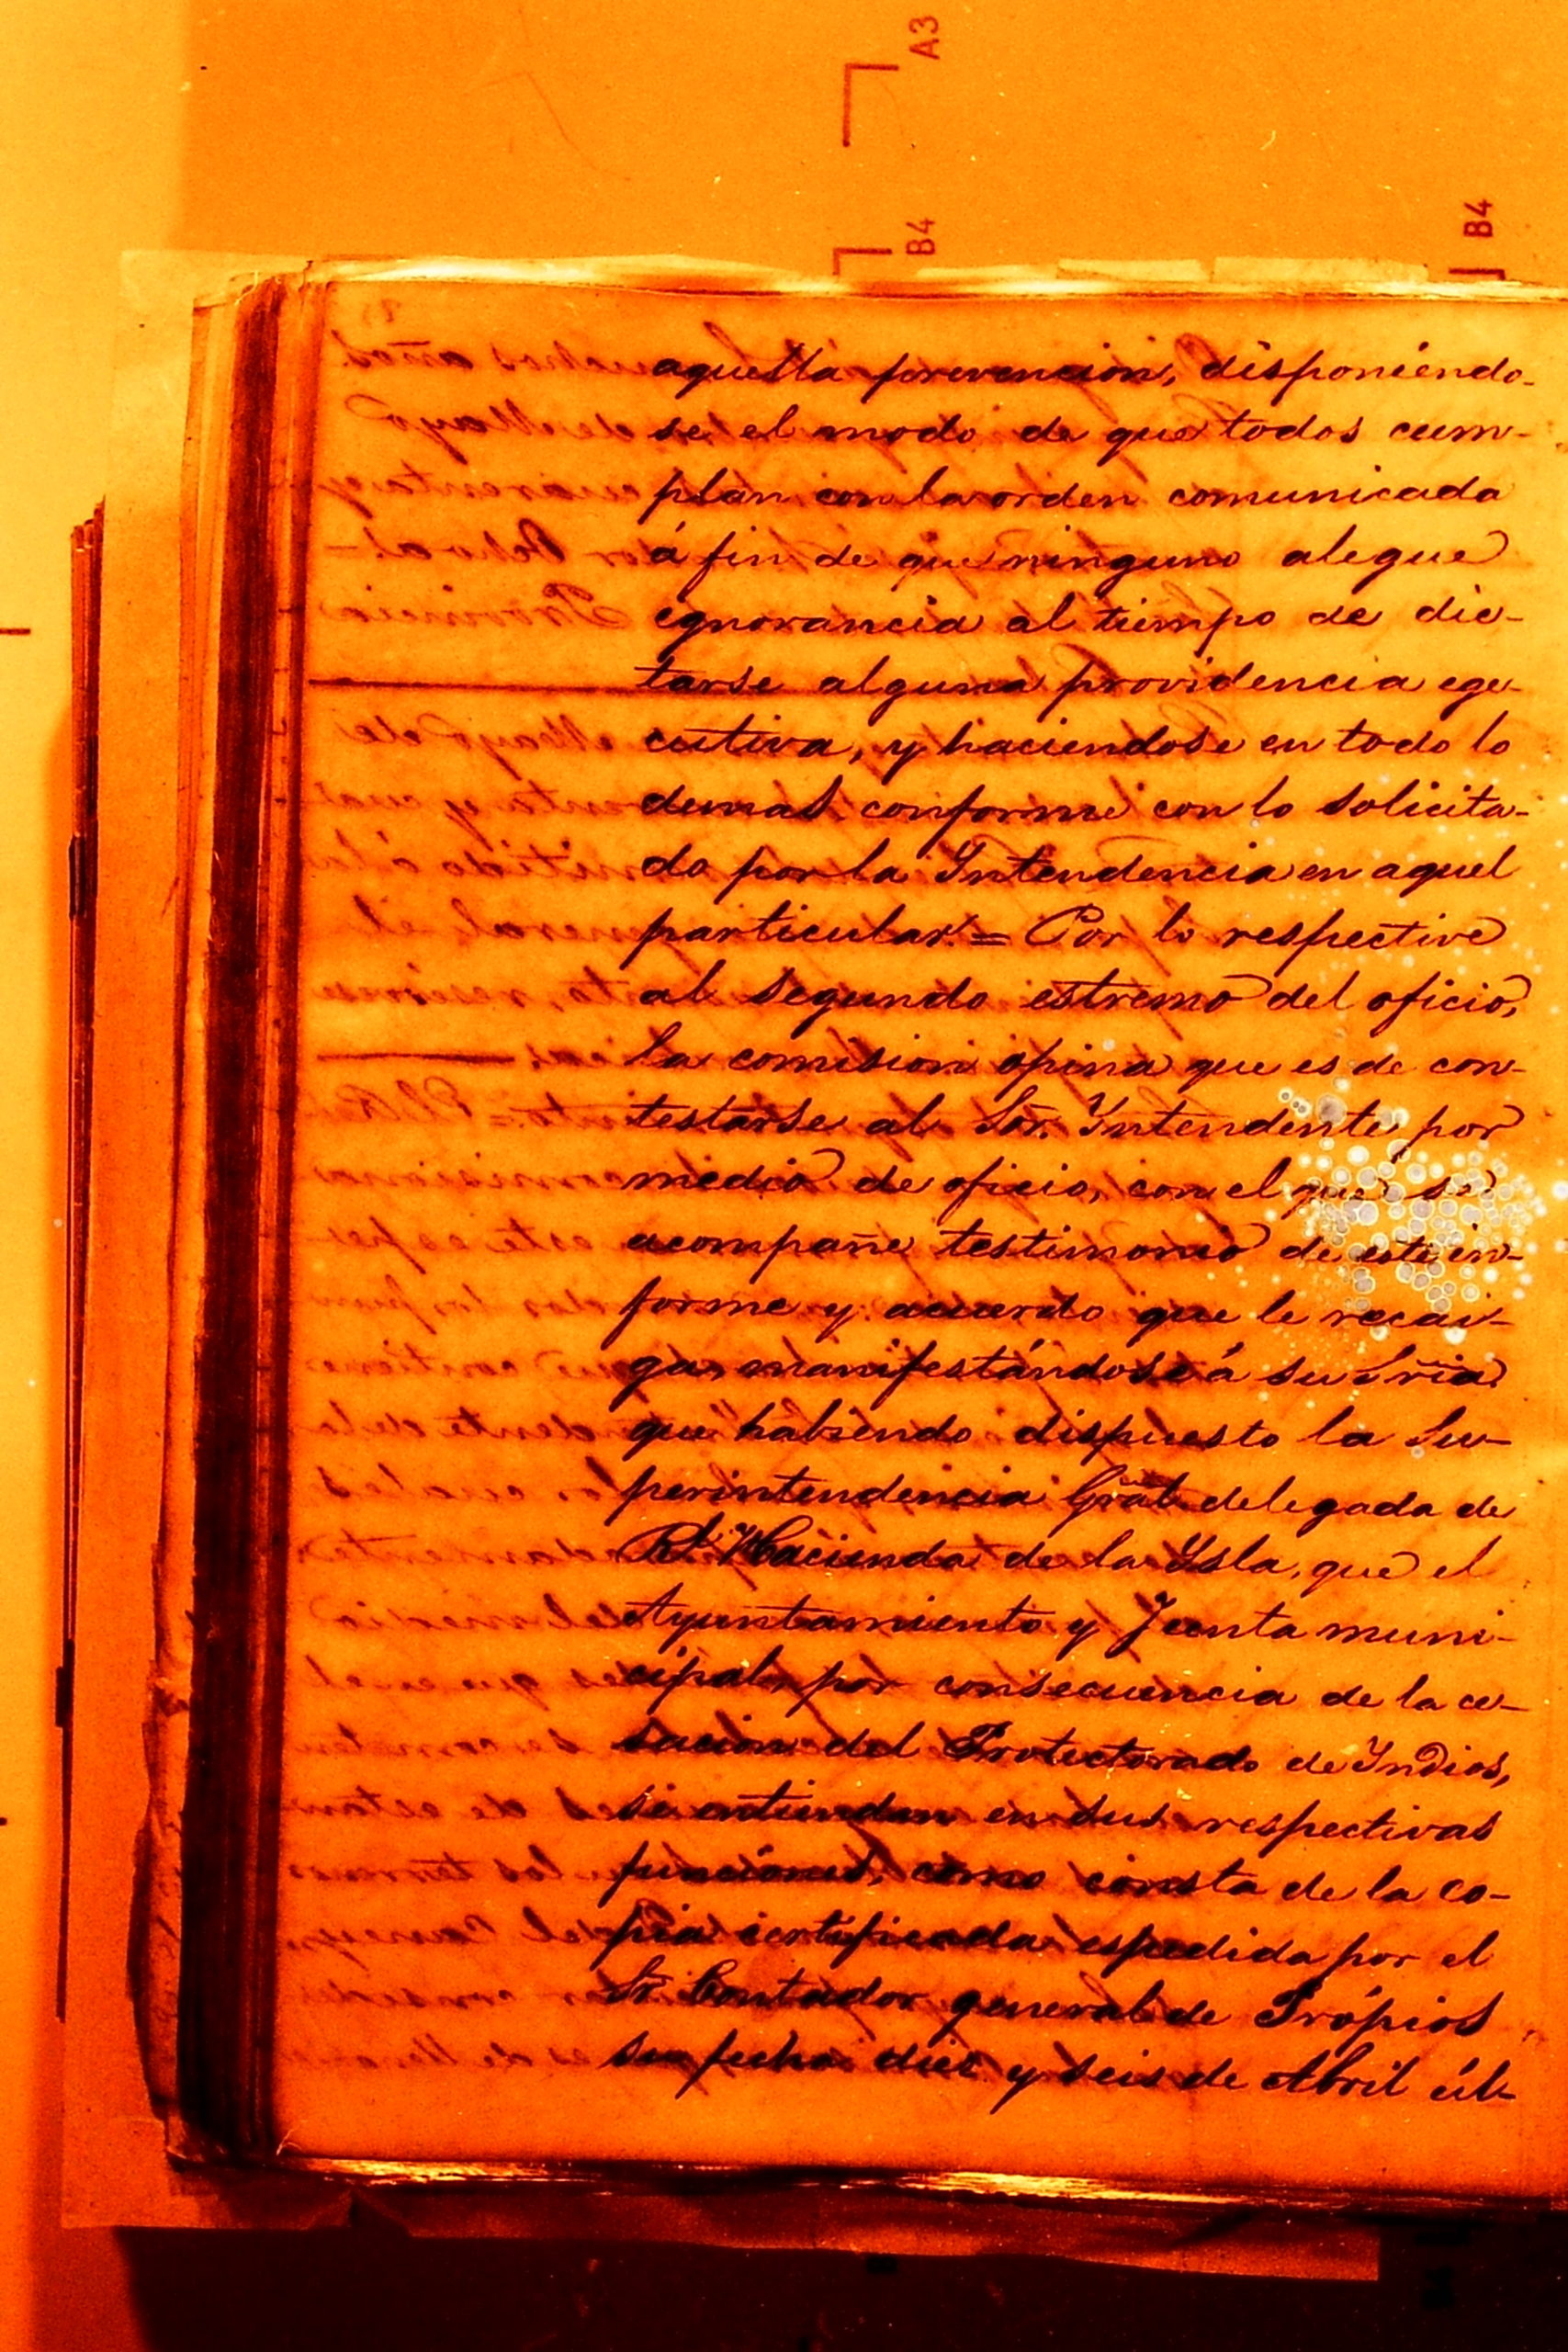 A3
B4
B4
aquella prevencion, disponiendo-
se el modo de que todos cum-
plan con la orden comunicada
á fin de que ninguno alegue
ygnorancia al tiempo de dic-
tarse alguna providencia ege-
cutiva, y haciendose en todo lo
demas conforme con lo solicita-
do por la Intendencia en aquel
particular. = Por lo respective
al segundo estremo del oficio,
la comision opina que es de con-
testarse al Sor. Yntendente por
medio de oficio, con el que se
acompañe testimonio de este in-
forme y acuerdo que le recai-
ga, manifestándose á su Sria.
que habiendo dispuesto la Su-
perintendencia Gral. delegada de
Rl. Hacienda de la Ysla, que el
Ayuntamiento y Junta muni-
cipal, por consecuencia de la ce-
sacion del Protectorado de Yndios,
se entiendan en sus respectivas
funciones, como consta de la co-
pia certificada espedida por el
Sr. Contador general de Própios
su fecha diez y seis de Abril úl-